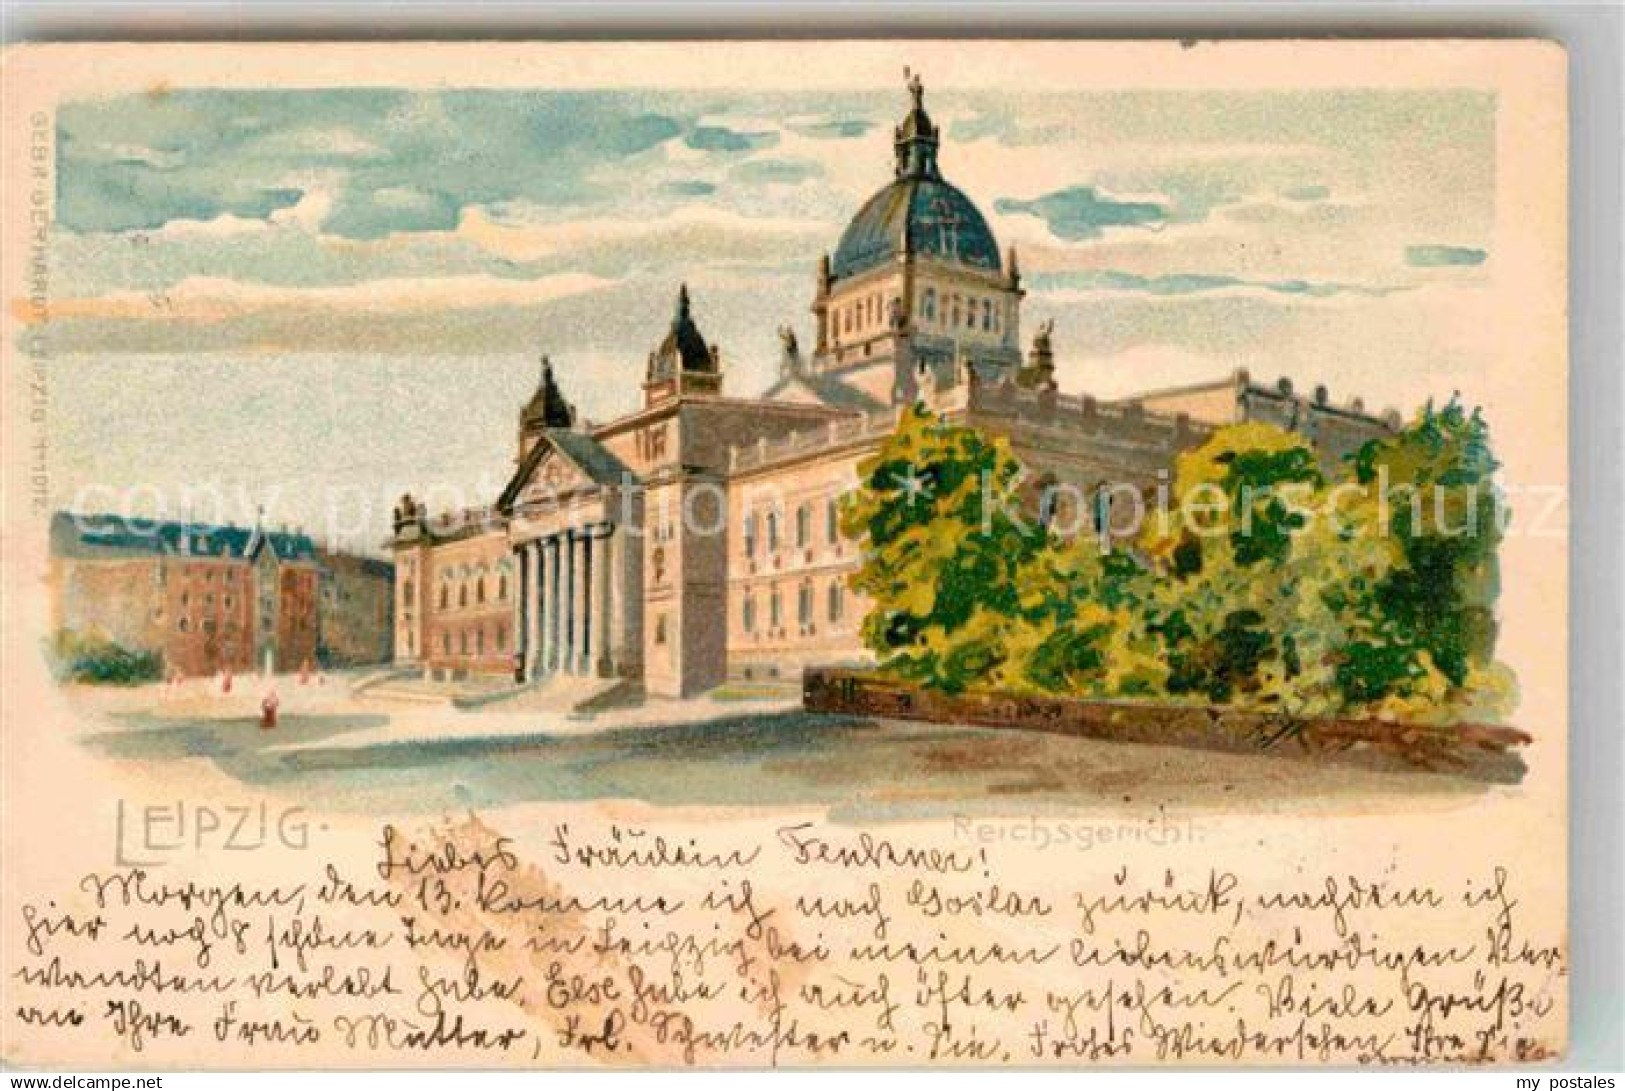 GEBR. GERHARDT, LEIPZIG. 11012.
copy protection * Kopierschutz
LEIPZIG.
Reichsgericht.
Liebes Fräulein
Morgen, den 13. komme ich nach Goslar zurück, nachdem ich
hier noch 8 schöne Tage in Leipzig bei meinen liebenswürdigen Ver-
wandten verlebt habe. Else habe ich auch öfter gesehen. Viele Grüße
an Ihre Frau Mutter, Frl. Schwester u. Sie. Frohes Wiedersehen Ihre
www.delcampe.net
my_postales